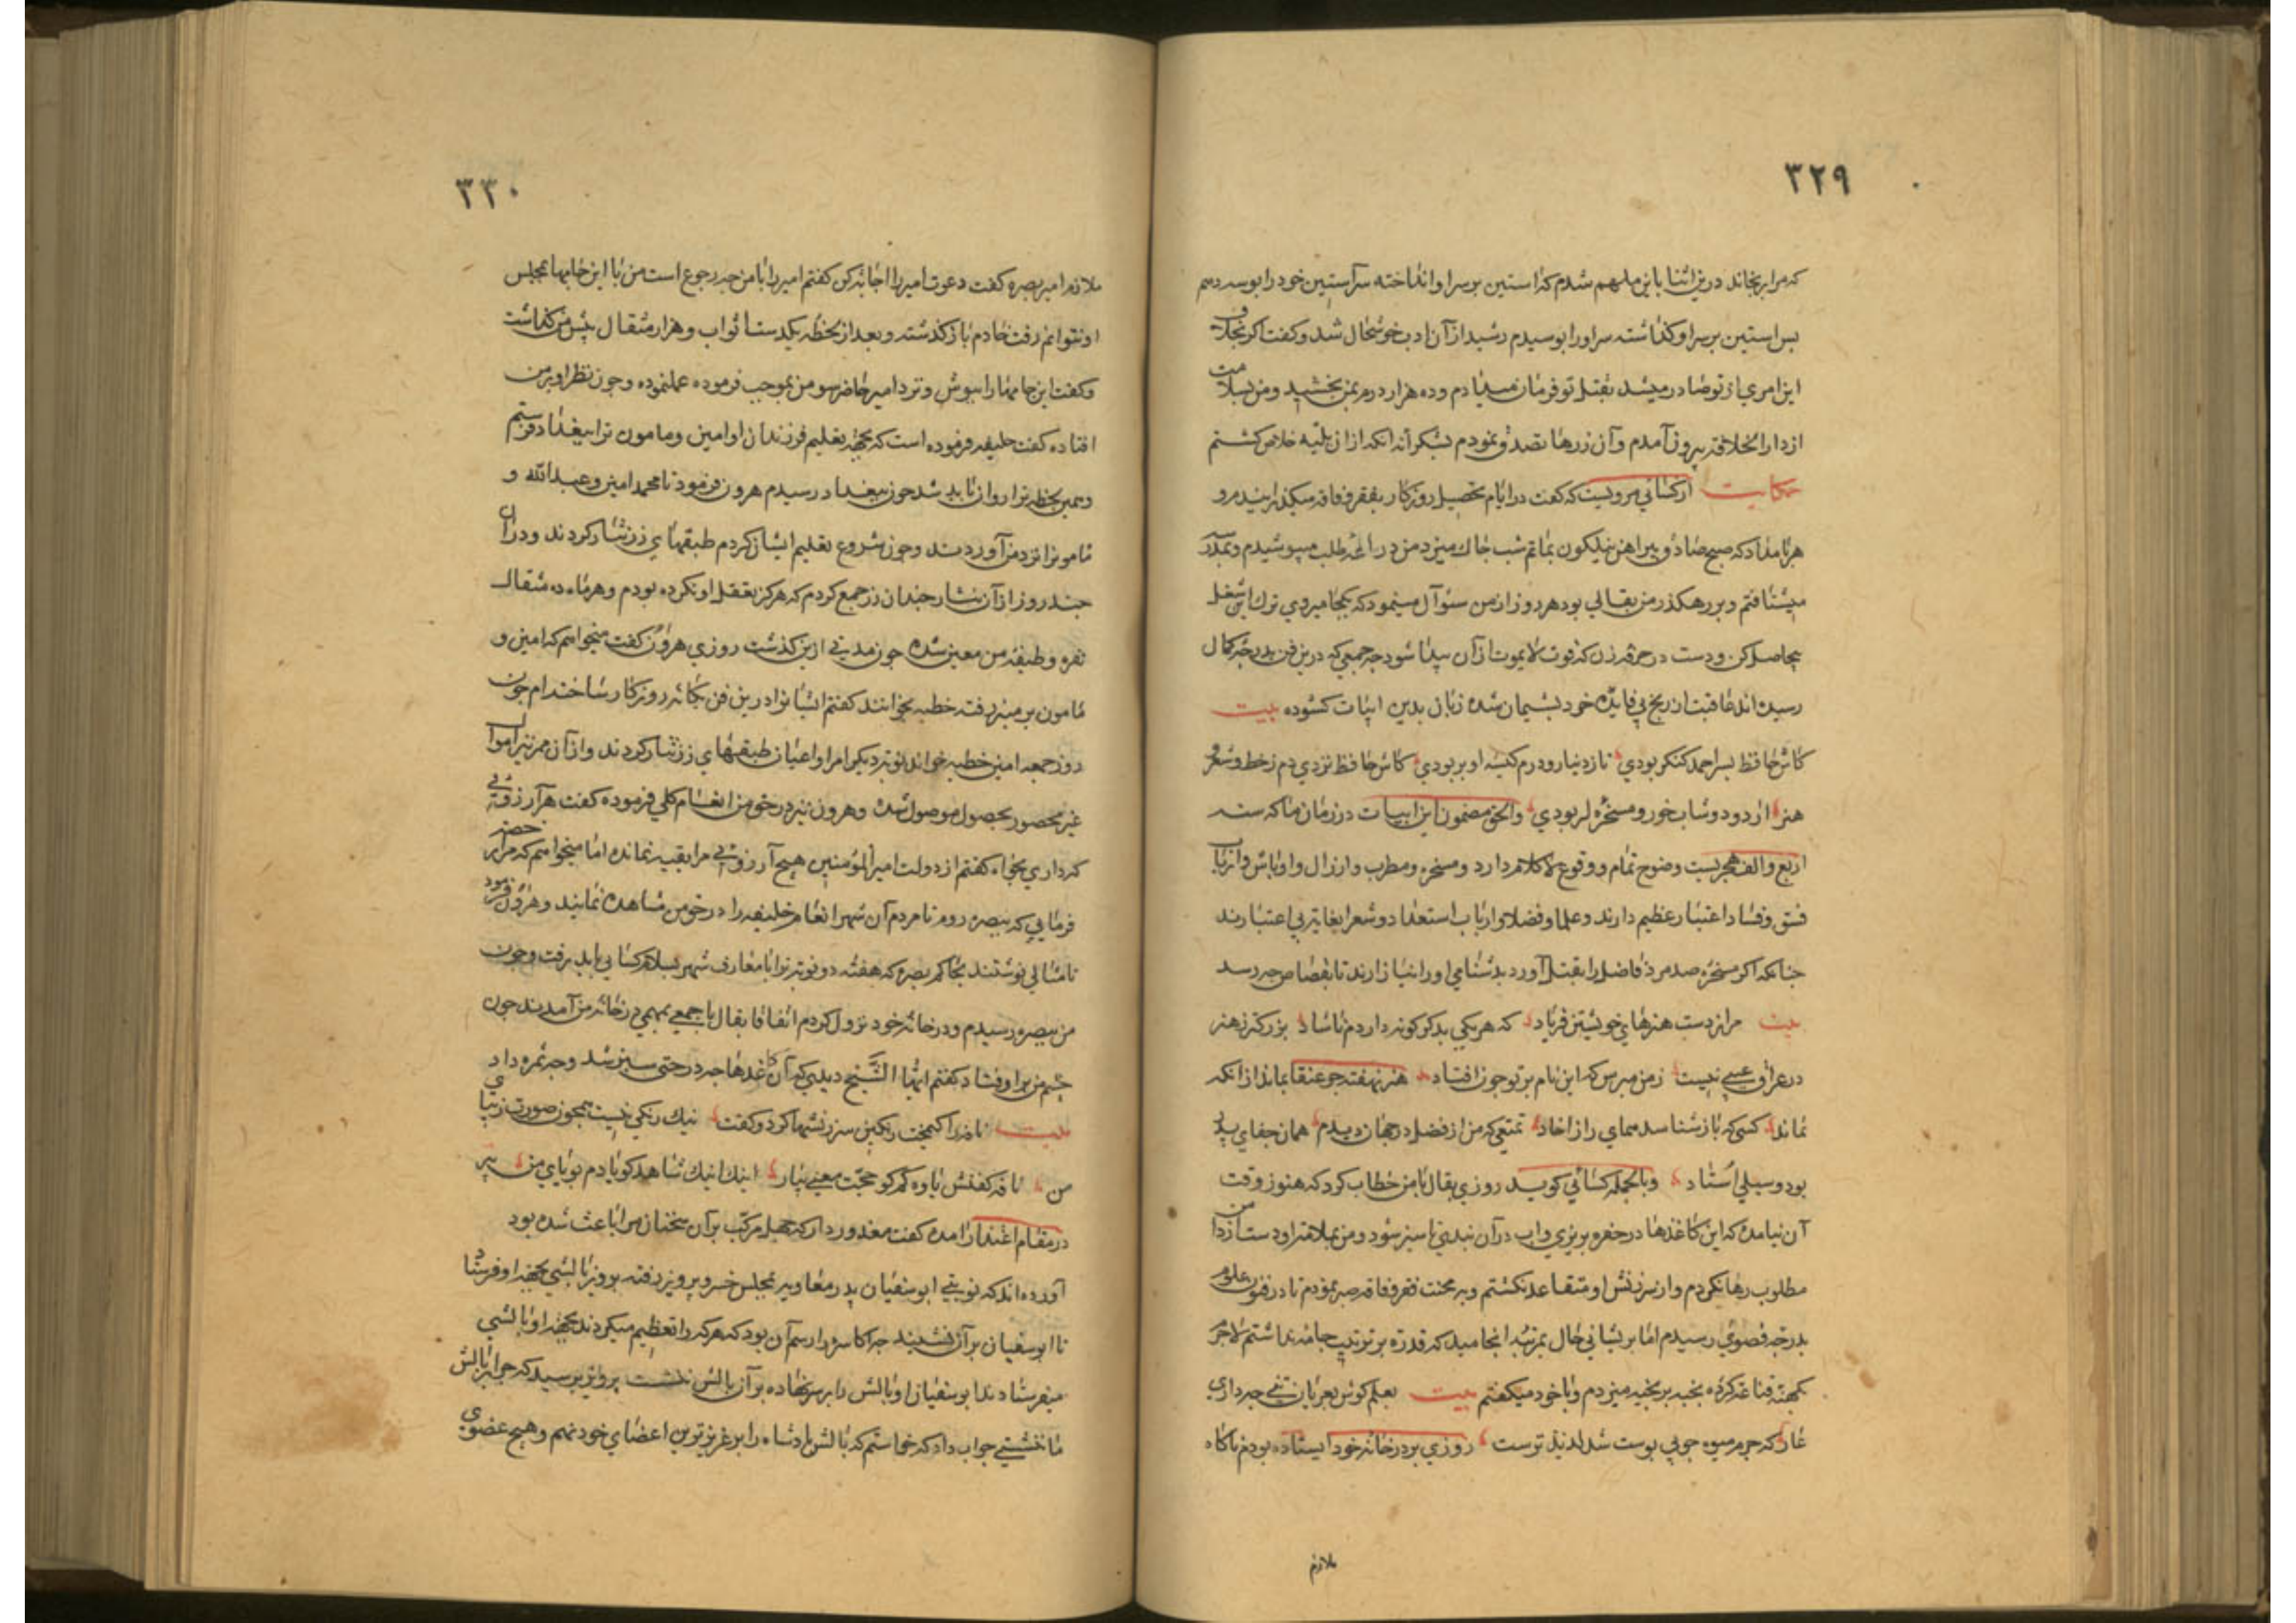 ٣٢٩
که مرا برنجاند درین اثنا باین ملهم شدم که استین بر سر او انداخته سر آستین خود را بوسه دهم
بس استین بر سر او کذاشته سر اورا بوسیدم رشید از آن ادب خوشحال شد وکفت اکر بخلاف
این امری از تو صادر میشد بقتل تو فرمان میدادم و ده هزار درم بمن بخشید و من بسلامت
از دار الخلافه بیرون آمدم و آن زرها تصدق نمودم بشکرانه انکه از ان بلیه خلاص کشتم
حکایت از کسائی مرویست که کفت در ایام تحصیل روزکار بفقر و فاقه میکذرانیدم و
هر بامداد که صبح صادق پیراهن نیلکون بماتم شب چاک میزد من دراعه طلب میپوشیدم و بمدرسه
میشتافتم و بر رهکذر من بقالی بود هر روز از من سئوآل مینمود که بکجا میروی ترک این شغل
بیحاصل کن و دست در حرفه زن که قوت لایموت از آن پیدا شود چه جمعی که درین فن بدرجه کمال
رسیده اند عاقبت از رنج بی فایده خود پشیمان شده زبان بدین ابیات کشوده بیت
کاش حافظ پسر احمد کنکر بودی تا ز دینار و درم کیسه او پر بودی کاش حافظ نزدی دم ز خط و شعر و
هنر از دو دوشاب خور و مسخره لر بودی والحق مضمون این ابیات در زمان ما که سنه
اربع والف هجریست وضوح تمام و وقوع لاکلام دارد و مسخره و مطرب و ارزال و اوباش و ارباب
فسق و فساد اعتبار عظیم دارند و علما و فضلا و ارباب استعداد و شعرا بغایت بی اعتبارند
چنانکه اکر مسخره صد مرد فاضل را بقتل آورد بدشنامی اورا نیازارند تا بقصاص چه رسد
بیت مرا ز دست هنرهای خویشتن فریاد که هر یکی بدکر کونه داردم ناشاد بزرکتر ز هنر
در عراق عیبی نیست ز من مپرس که این نام بر تو چون افتاد هنر نهفته چو عنقا بماند از انکه
نماند کسی که باز شناسد همای را از خاد تمتعی که من از فضل در جهان دیدم همان جفای پدر
بود و سیلی استاد وبالجمله کسائی کوید روزی بقال با من خطاب کرد که هنوز وقت
آن نیامده که این کاغذها در حفره بریزی و اب در آن بندی تا سبز شود و من بملامت او دست از دامن
مطلوب رها نکردم و از سرزنش او متقاعد نکشتم و بر محنت فقر و فاقه صبر نمودم تا در فنون علوم
بدرجه قصوی رسیدم اما پریشانی حال بمرتبه انجامید که قدرة بر ترتیب جامه نداشتم لاجرم
بکهنه قناعت کرده بخیه بر بخیه میزدم و با خود میکفتم بیت بعلم کوش بعریان تنی چه داری
عار که جرم میوه چو بی پوست شد لذیذ ترست روزی بر در خانه خود ایستاده بودم ناکاه
ملازم
٣٣٠
ملازم امیر بصره کفت دعوت امیر را اجابت کن کفتم امیر را با من چه رجوع است من با این جامها بمجلس
او نتوانم رفت خادم باز کذشته و بعد از لحظه یکدست اثواب و هزار مثقال پیش من کذاشت
و کفت این جامها را بپوش و نزد امیر حاضر شو من بموجب فرموده عمل نموده و چون نظر او بر من
افتاده کفت خلیفه فرموده است که بجهة تعلیم فرزندان او امین و مامون ترا ببغداد فرستم
و همین لحظه ترا روان باید شد چون ببغداد رسیدم هرون فرمود تا محمد امین و عبدالله و
مامونرا نزد من آوردند و چون شروع بتعلیم ایشان کردم طبقهای زر نثار کردند و در ان
چند روز از آن نثار چندان زر جمع کردم که هرکز بعقل او نکرده بودم و هر ماه ده مثقال
نقره وظیفه من معین شده چون مدتی از ین کذشت روزی هرون کفت میخواهم که امین و
مامون بر منبر رفته خطبه بخوانند کفتم ایشانرا درین فن یکانه روزکار ساخته ام چون
روز جمعه امین خطبه خواند نوبت دیکر امرا و اعیان طبقهای زر نثار کردند و از آن ممر نیز اموال
غیر محصور بحصول موصول شده و هرون نیز در حق من انعام کلی فرموده کفت هر آرزوئی
که داری بخواه کفتم از دولت امیر المؤمنین هیچ آرزوئی مرا بقیه نمانده اما میخواهم که مرا رخصت
فرمائی که ببصره روم تا مردم آن شهر انعام خلیفه را در حق من مشاهده نمایند و هرون فرمود
تا مثالی نوشتند بحاکم بصره که هفته دو نوبت ترا با معارف شهر بسلام کسائی باید رفت و چون
من ببصره رسیدم و در خانه خود نزول کردم اتفاقا بقال با جمعی بمهمی در خانه من آمدند چون
چشم من بر او فتاد کفتم ایها الشیخ دیدی که آن کاغذها چه درختی سبز شد و چه ثمره داد
بیت نافه را کیمخت رنکین سرزنشها کرد و کفت نیک رنکی نیست همچون صورت زیبای
من نافه کفتش یاوه کم کو حجت معنی بیار اینک اینک شاهد کویا دم بویای من پیر
در مقام اعتذار امده کفت معذور دار که جهل مرکب بر آن سخنان مرا باعث شده بود
آورده اند که نوبتی ابو سفیان پدر معاویه بمجلس خسرو پرویز رفته پرویز بالشی بجهة او فرستاد
تا ابو سفیان بر آن نشیند چه اکاسره را رسم آن بود که هرکه را تعظیم میکردند بجهة او بالشی
میفرستادند ابو سفیان او بالش را بر سر نهاده بر آن بالش ننشست پرویز پرسید که چرا بر بالش
ما ننشستی جواب داد که خواستم که بالش پادشاه را بر عزیزترین اعضای خود نهم و هیچ عضوی